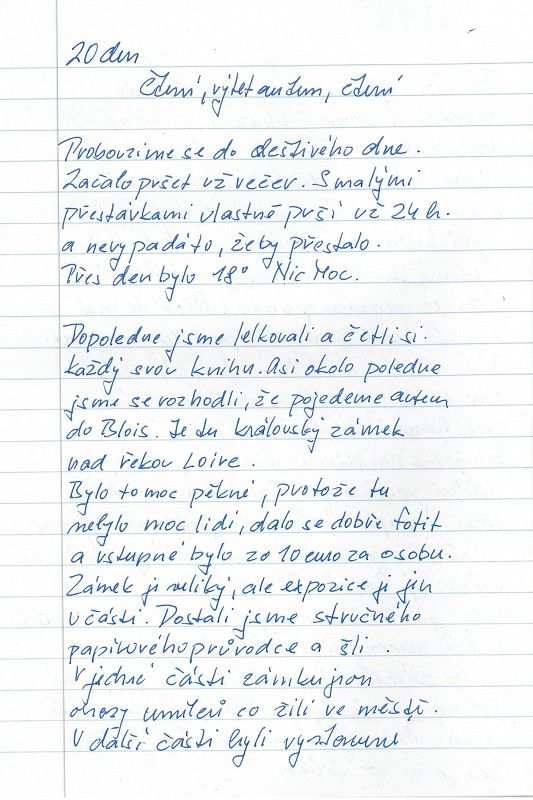 20 den
Čtení, výlet autem, čtení
Probouzíme se do deštivého dne.
Začalo pršet už večer. S malými
přestávkami vlastně prší už 24 h.
a nevypadá to, že by přestalo.
Přes den bylo 18° Nic Moc.
Dopoledne jsme lelkovali a četli si.
každý svou knihu. Asi okolo poledne
jsme se rozhodli, že pojedeme autem
do Blois. Je tu královský zámek
nad řekou Loire.
Bylo to moc pěkné, protože tu
nebylo moc lidí, dalo se dobře fotit
a vstupné bylo za 10 euro za osobu.
Zámek je veliký, ale expozice je jen
v části. Dostali jsme stručného
papírového průvodce a šli.
V jedné části zámku jsou
obrazy umělců co žili ve městě.
V další části byli